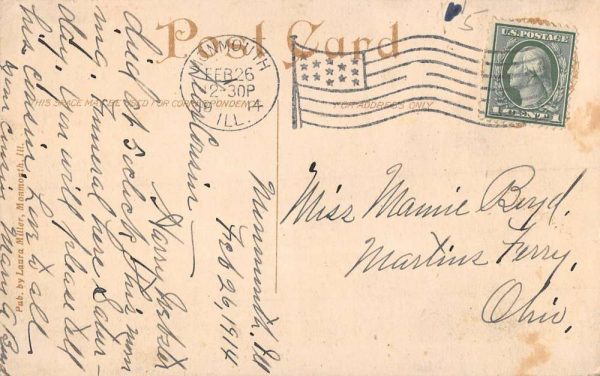 Post Card
THIS SPACE MAY BE USED FOR CORRESPONDENCE
FOR ADDRESS ONLY
MONMOUTH
FEB 26
12-30P
1914
ILL.
U.S. POSTAGE
1 CENT 1
5
Miss Mamie Boyd.
Martins Ferry,
Ohio,
Monmouth. Ill
Feb 26, 1914
Cousin —
Harry
died at 5 oclock this morn
ing. Funeral here Satur-
day. Can will please tell
his cousin. Love to all
Your cousin
Pub. by Laura Miller, Monmouth, Ill.